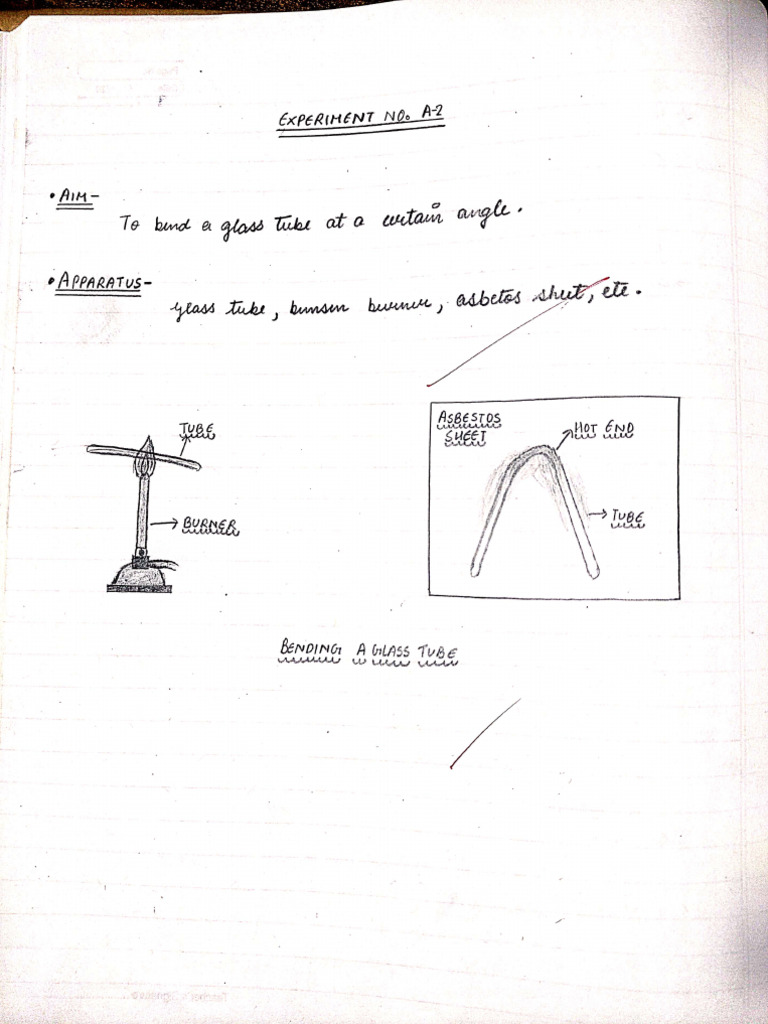 EXPERIMENT NO. A-2
• AIM -
To bend a glass tube at a certain angle.
• APPARATUS -
glass tube, bunsen burner, asbetos sheet, etc.
TUBE
BURNER
ASBESTOS
SHEET
HOT END
TUBE
BENDING A GLASS TUBE